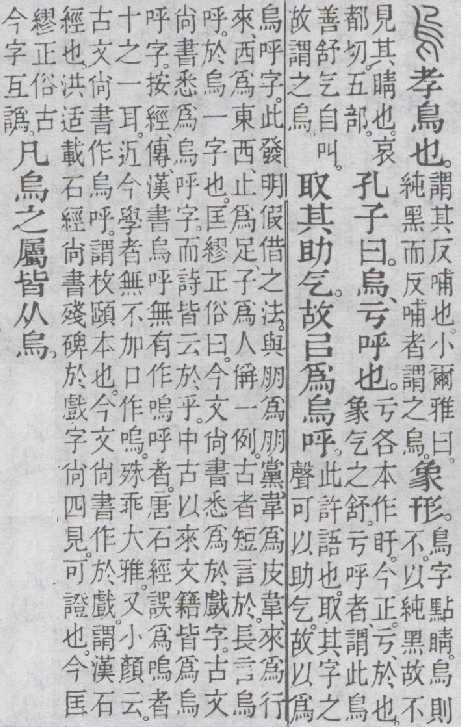 孝烏也。謂其反哺也。小爾雅曰。
純黑而反哺者謂之烏。象形。鳥字點睛。烏則
不以純黑故不
見其睛也。哀
都切。五部。孔子曰。烏、亏呼也。亏各本作盱。今正。亏、於也。
象气之舒。亏呼者、謂此鳥
善舒气自叫。
故謂之烏。取其助气。故㠯爲烏呼。此許語也。取其字之
聲可以助气。故以爲
烏呼字。此發明假借之法。與朋爲朋黨、韋爲皮韋、來爲行
來、西爲東西、止爲足、子爲人偁一例。古者短言於、長言烏
呼。於烏一字也。匡繆正俗曰。今文尙書悉爲於戲字。古文
尙書悉爲烏呼字。而詩皆云於乎。中古以來文籍皆爲烏
呼字。按經傳、漢書烏呼無有作嗚呼者。唐石經誤爲嗚者
十之一耳。近今學者無不加口作嗚。殊乖大雅。又小顏云。
古文尙書作烏呼。謂枚頤本也。今文尙書作於戲。謂漢石
經也。洪适載石經尙書殘碑於戲字尙四見。可證也。今匡
繆正俗古
今字互譌。凡烏之屬皆从烏。